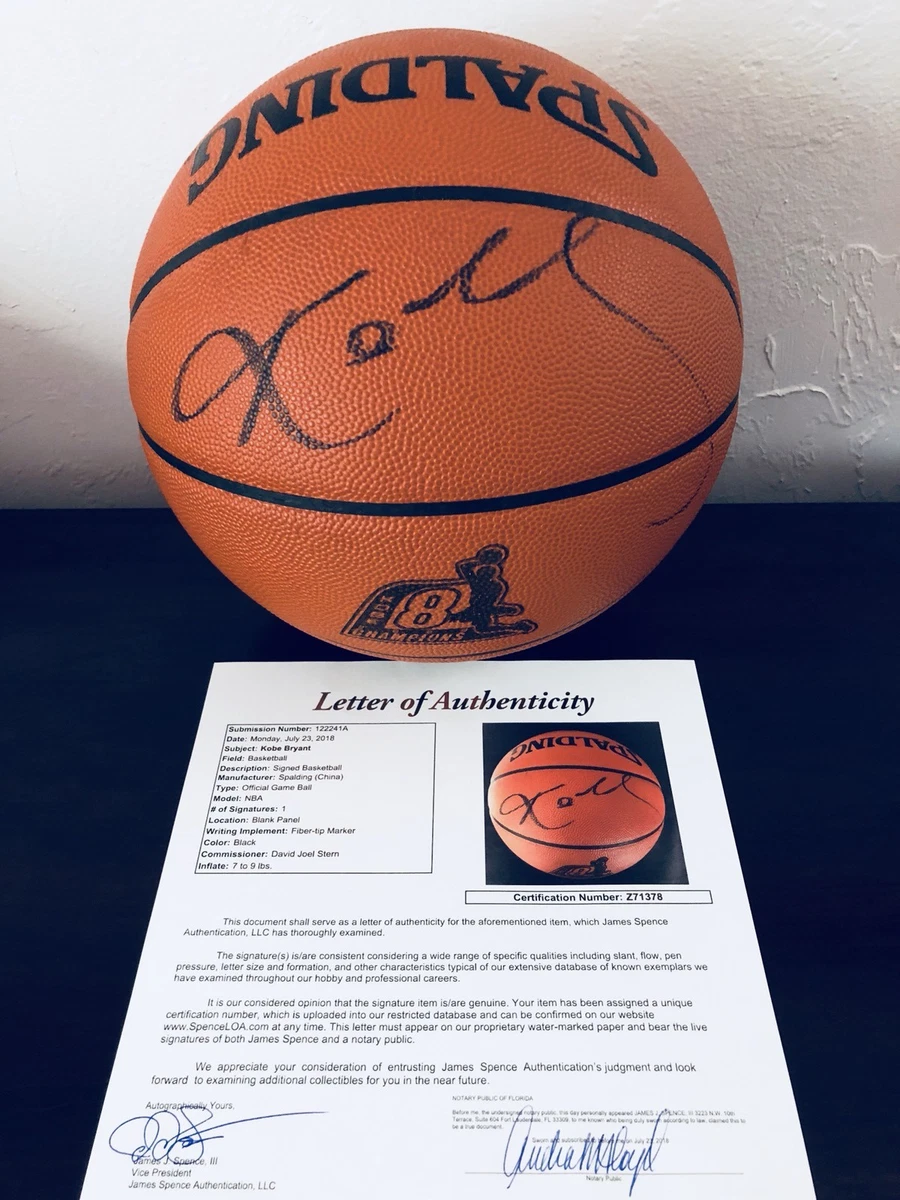 SPALDING
8
CHAMPIONS
Letter of Authenticity
Submission Number: 122241A
Date: Monday, July 23, 2018
Subject: Kobe Bryant
Field: Basketball
Description: Signed Basketball
Manufacturer: Spalding (China)
Type: Official Game Ball
Model: NBA
# of Signatures: 1
Location: Blank Panel
Writing Implement: Fiber-tip Marker
Color: Black
Commissioner: David Joel Stern
Inflate: 7 to 9 lbs.
SPALDING
Certification Number: Z71378
This document shall serve as a letter of authenticity for the aforementioned item, which James Spence
Authentication, LLC has thoroughly examined.
The signature(s) is/are consistent considering a wide range of specific qualities including slant, flow, pen
pressure, letter size and formation, and other characteristics typical of our extensive database of known exemplars we
have examined throughout our hobby and professional careers.
It is our considered opinion that the signature item is/are genuine. Your item has been assigned a unique
certification number, which is uploaded into our restricted database and can be confirmed on our website
www.SpenceLOA.com at any time. This letter must appear on our proprietary water-marked paper and bear the live
signatures of both James Spence and a notary public.
We appreciate your consideration of entrusting James Spence Authentication's judgment and look
forward to examining additional collectibles for you in the near future.
Autographically Yours,
James J. Spence, III
Vice President
James Spence Authentication, LLC
NOTARY PUBLIC OF FLORIDA
Before me, the undersigned notary public, this day personally appeared JAMES J. SPENCE, III 3223 N.W. 10th
Terrace, Suite 604 Fort Lauderdale, FL 33309, to me known who being duly sworn according to law, claimed this to
be a true document.
Sworn and subscribed to before me on July 23, 2018
Notary Public